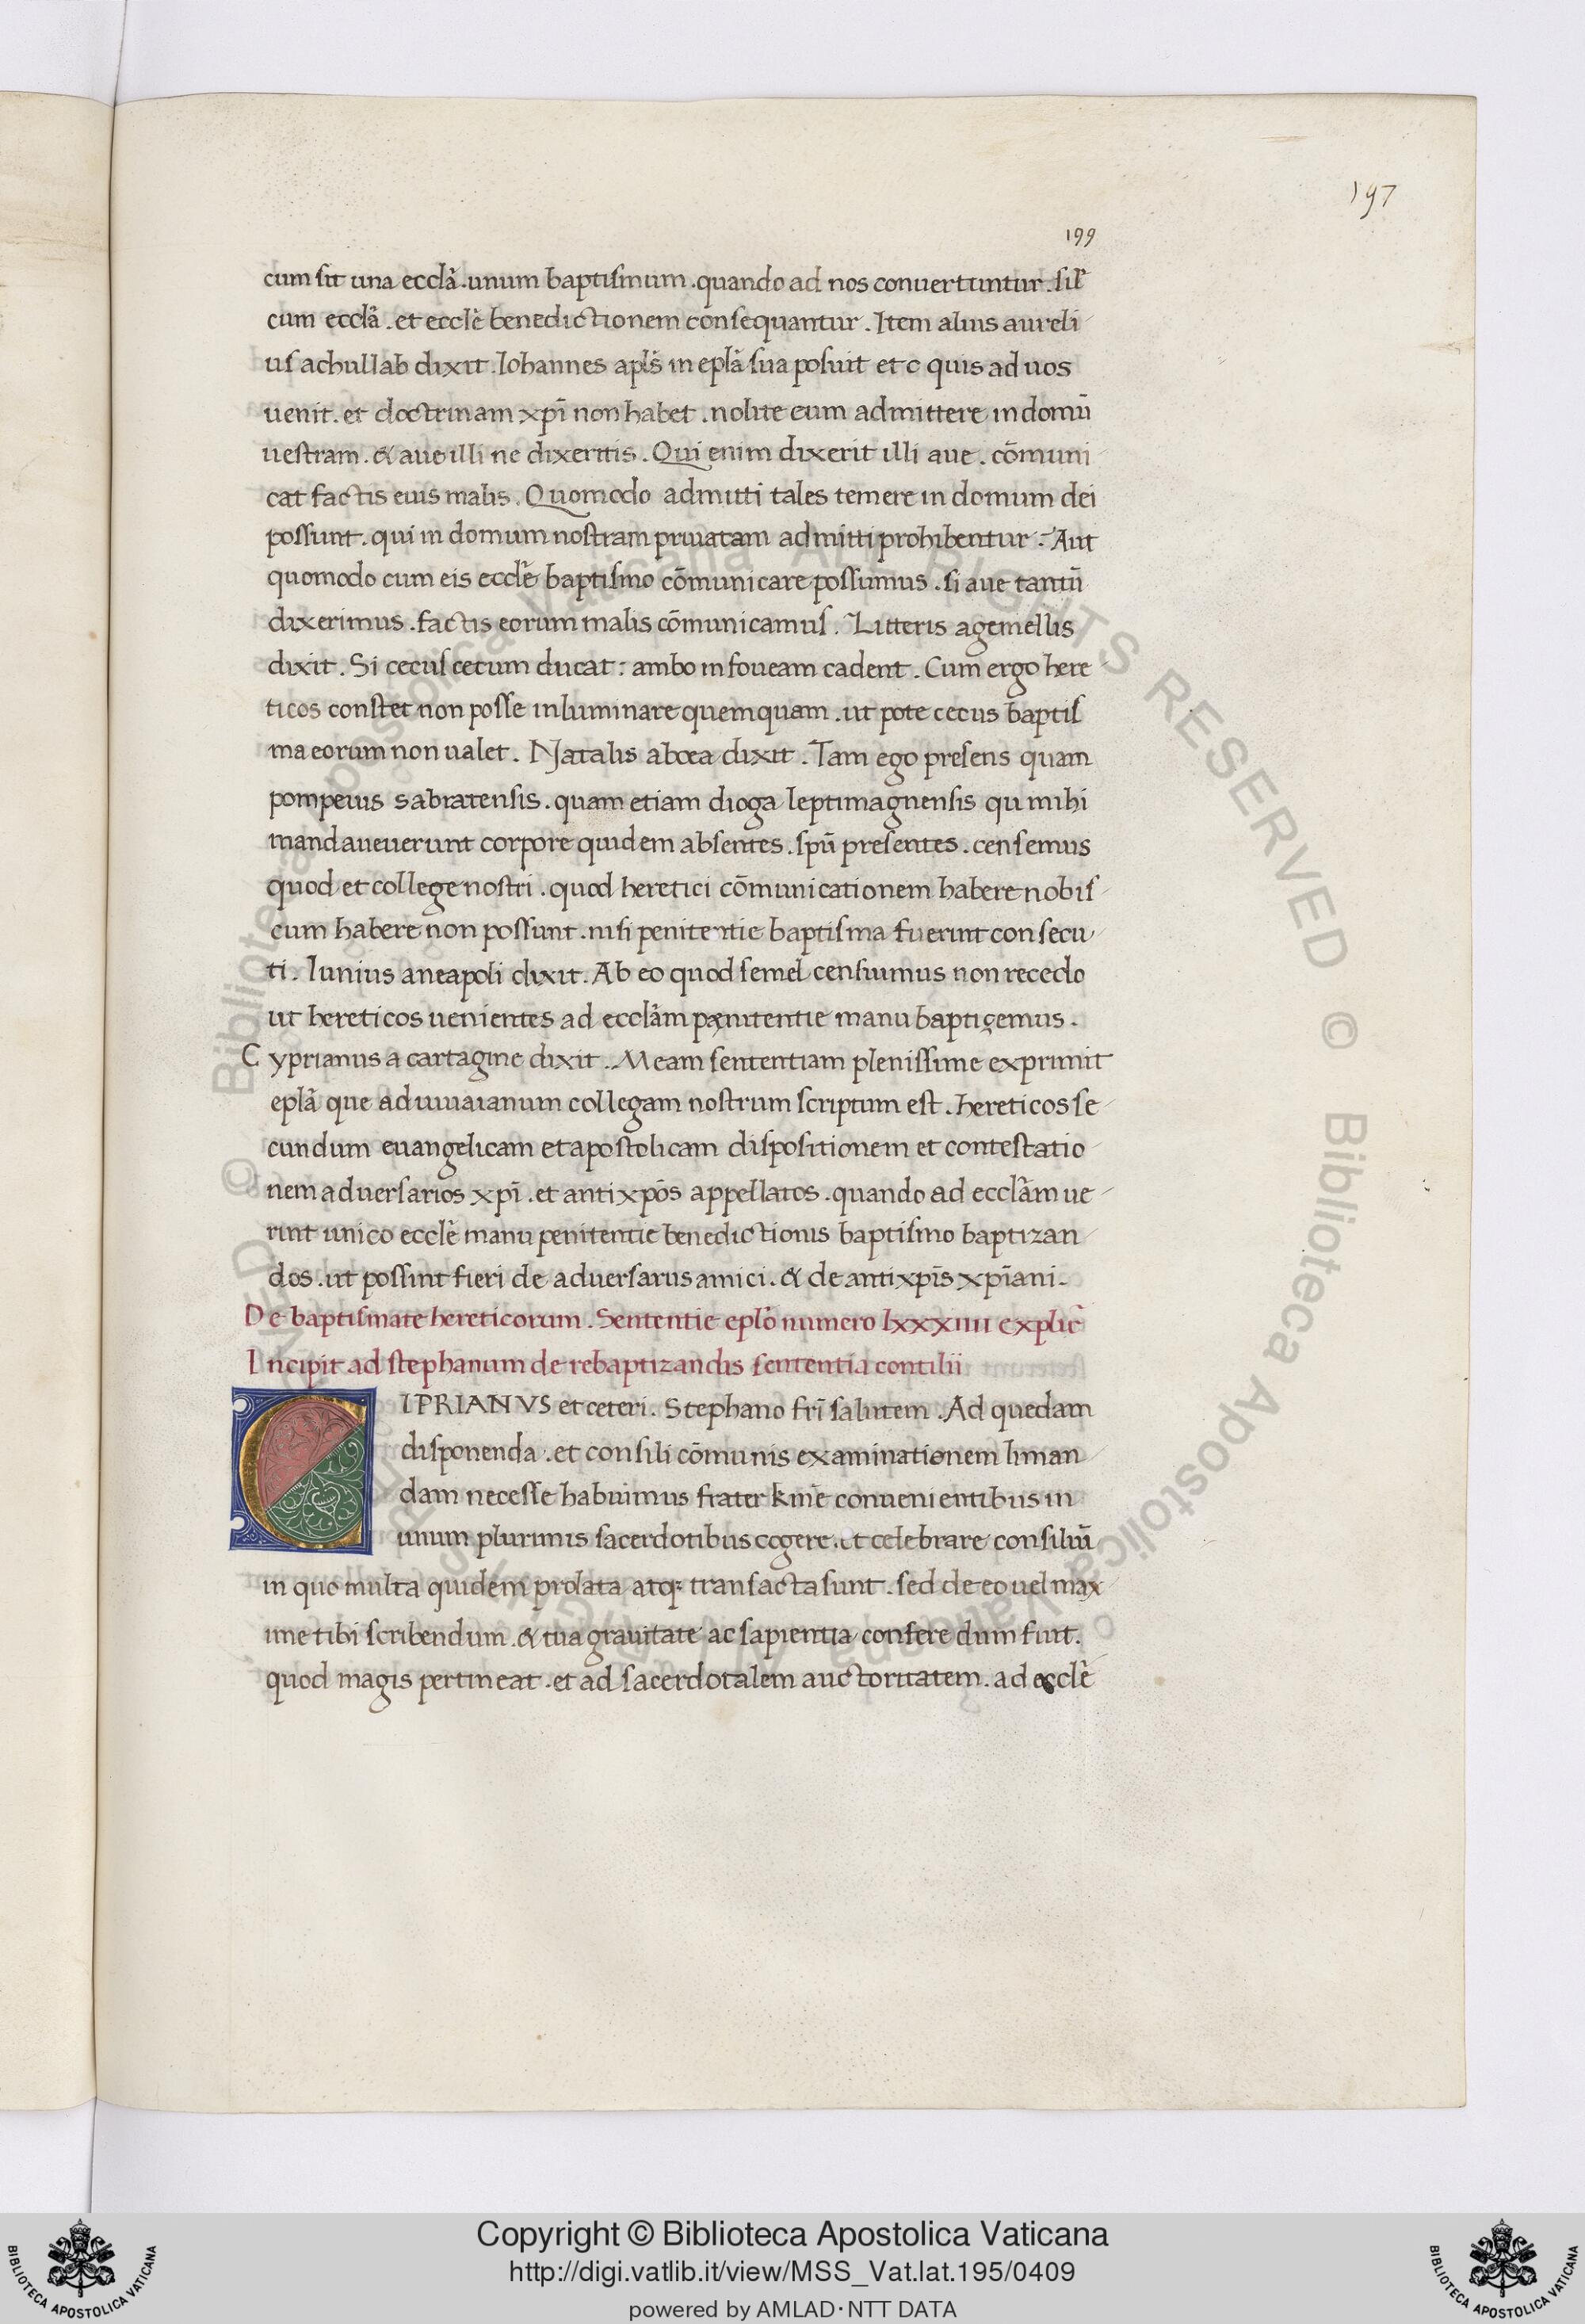 197
199
cum sit una ecclā. unum baptismum. quando ad nos conuertuntur. sil̄
cum ecclā. et ecclē benedictionem consequantur. Item alius aureli
us achullab dixit. Iohannes apls̄ in eplā sua posuit et c quis ad uos
uenit. et doctrinam xpī non habet. nolite eum admittere in domū
uestram. & aue illi ne dixeritis. Qui enim dixerit illi aue. cōmuni
cat factis eius malis. Quomodo admitti tales temere in domum dei
possunt. qui in domum nostram priuatam admitti prohibentur. Aut
quomodo cum eis ecclē baptismo cōmunicare possumus. si aue tantū
dixerimus. factis eorum malis cōmunicamus. Litteris agemellis
dixit. Si cecus cecum ducat: ambo in foueam cadent. Cum ergo here
ticos constet non posse inluminare quemquam. ut pote cecus baptis
ma eorum non ualet. Natalis aboea dixit. Tam ego presens quam
pompeius sabratensis. quam etiam dioga leptimagnensis qu mihi
mandaueuerunt corpore quidem absentes. spū presentes. censemus
quod et college nostri. quod heretici cōmunicationem habere nobis
cum habere non possunt. nisi penitentie baptisma fuerint consecu
ti. Iunius aneapoli dixit. Ab eo quod semel censiumus non recedo
ut hereticos uenientes ad ecclām pænitentie manu baptizemus.
Cyprianus a cartagine dixit. Meam sententiam plenissime exprimit
eplā que ad iuuaianum collegam nostrum scriptum est. hereticos se
cundum euangelicam et apostolicam dispositionem et contestatio
nem aduersarios xpī. et antixpōs appellatos. quando ad ecclām ue
rint unico ecclē manu penitentie benedictionis baptismo baptizan
dos. ut possint fieri de aduersarus amici. & de antixpīs xpīani.
De baptismate hereticorum. Sententie eplō numero lxxxiiii explic̄
Incipit ad stephanum de rebaptizandis sententia contilii
CIPRIANVS et ceteri. Stephano frī salutem. Ad quedam
disponenda. et consili cōmunis examinationem liman
dam necesse habuimus frater kmē conuenientibus in
unum plurimis sacerdotibus cogere. et celebrare consiliū
in quo multa quidem prolata atq; transacta sunt. sed de eo uel max
ime tibi scribendum. & tua grauitate ac sapientia confere dum fuit.
quod magis pertineat. et ad sacerdotalem auctoritatem. ad ecclē
Copyright © Biblioteca Apostolica Vaticana
http://digi.vatlib.it/view/MSS_Vat.lat.195/0409
powered by AMLAD·NTT DATA